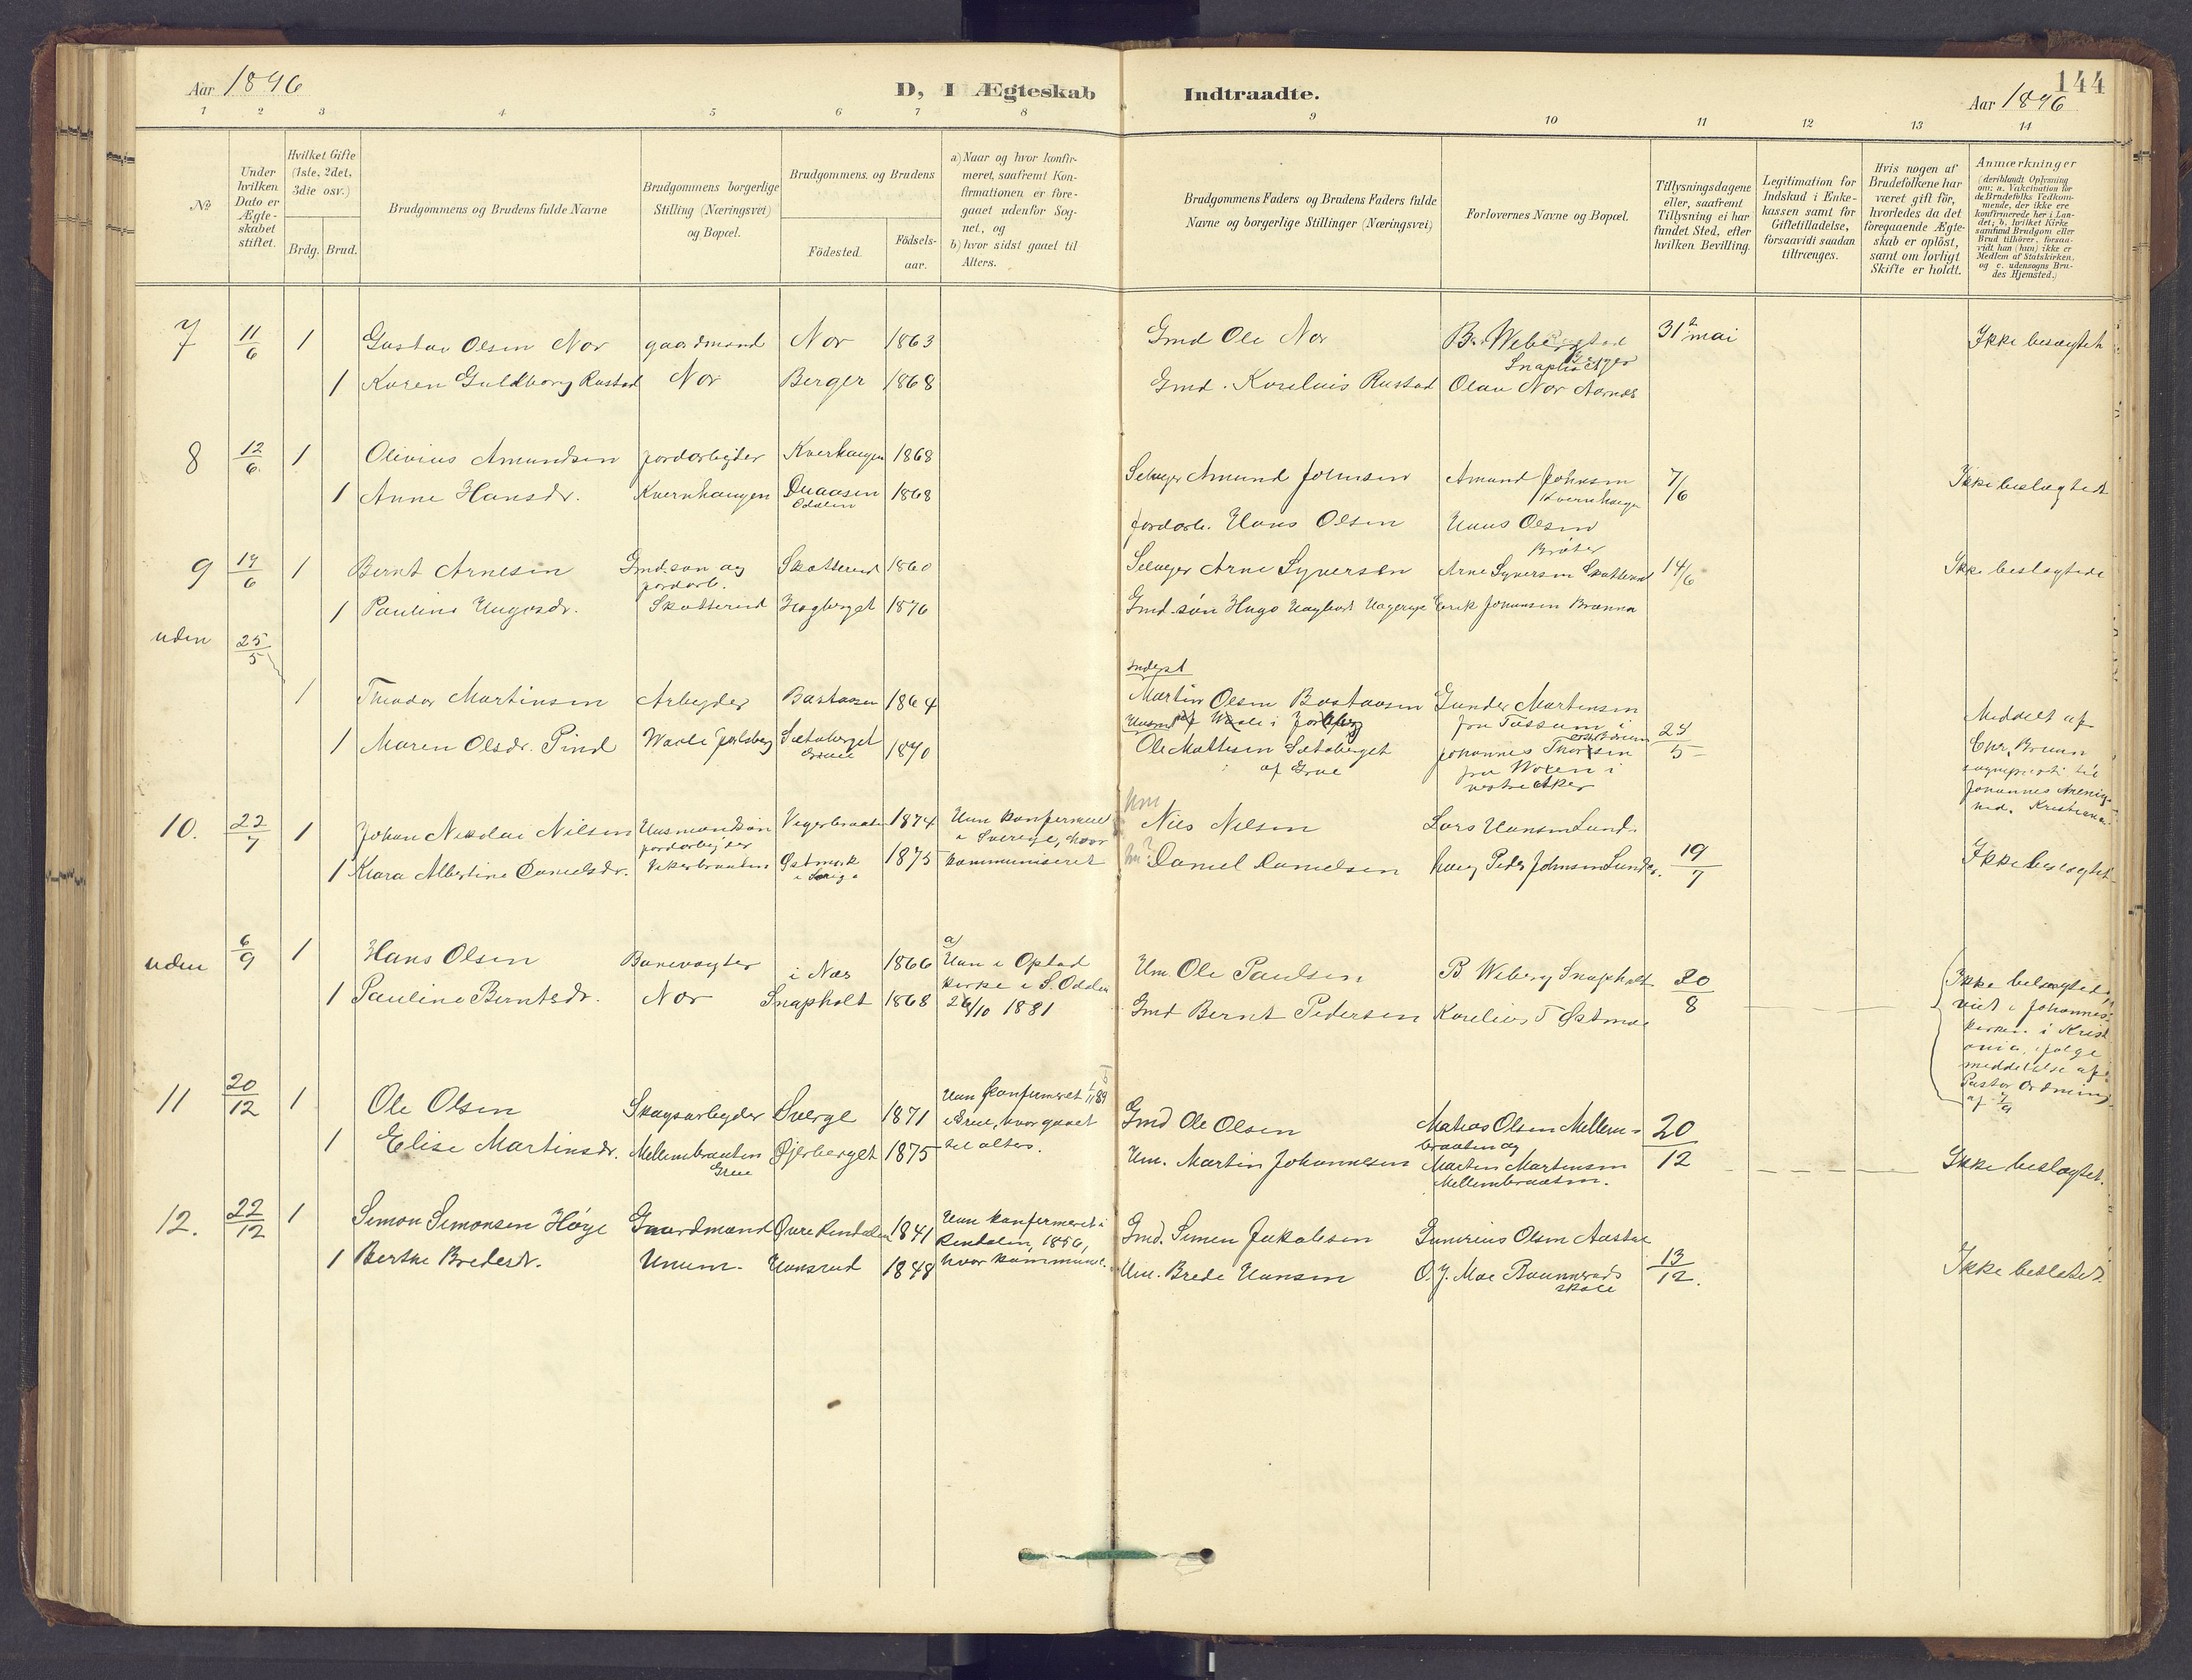 144
Aar 1896 D, I Ægteskab Indtraadte. Aar 1896
1 2 3 4 5 6 7 8 9 10 11 12 13 14
№
Under hvilken Dato er Ægteskabet stiftet.
Hvilket Gifte (1ste, 2det, 3die osv.)
Brdg. Brud.
Brudgommens og Brudens fulde Navne
Brudgommens borgerlige Stilling (Næringsvei) og Bopæl.
Brudgommens og Brudens
Födested.
Födselsaar.
a) Naar og hvor konfirmeret, saafremt Konfirmationen er foregaaet udenfor Sognet, og
b) hvor sidst gaaet til Alters.
Brudgommens Faders og Brudens Faders fulde Navne og borgerlige Stillinger (Næringsvei)
Forlovernes Navne og Bopæl.
Tillysningsdagene eller, saafremt Tillysning ei har fundet Sted, efter hvilken Bevilling.
Legitimation for Indskud i Enkekassen samt for Giftetilladelse, forsaavidt saadan tiltrænges.
Hvis nogen af Brudefolkene har været gift før, hvorledes da det foregaaende Ægteskab er oplöst, samt om lovligt Skifte er holdt.
Anmærkninger (deriblandt Oplysning om: a. Vakcination for de Brudefolks Vedkommende, der ikke ere konfirmerede her i Landet; b. hvilket Kirkesamfund Brudgom eller Brud tilhörer, forsaavidt han (hun) ikke er Medlem af Statskirken, og c. udensogns Brudes Hjemsted.)
7 11/6 1 Gustav Olsen Nor gaardmand Nor 1863 Gmd Ole Nor 31te mai Ikke beslægtet
1 Karen Guldborg Rustad Nor Berger 1868 Gmd. Kornelius Rustad Olav Nor Aarnes
8 12/6 1 Olivius Amundsen jordarbeider Kverhaugen 1868 Selveier Amund Johnsen Amund Johnsen Kvernhaugen 7/6 Ikke beslægtet
1 Anne Hansdr. Kvernhaugen Duaasen Odalen 1868 jordarb. Hans Olsen Hans Olsen Bråten
9 14/6 1 Bernt Arnesen Gmd.søn og jordarb. Skotterud 1860 Selveier Arne Syversen Arne Syversen Skotterud 14/6 Ikke beslægtede
1 Pauline Hugosdr. Skotterud 1876 Gmd.søn Hugo Erik Johansen Brænna
uden 25/5
1 Theodor Martinsen Arbeyder Bastaasen 1864 Inderst Martin Olsen Bastaasen Gunder Martinsen fra Tussum i 24/5 Meddelt af
1 Maren Olsdr. Pind Waale Jarlsberg Sætaberget Grue 1870 Ole Mattesen Sætaberget af Grue Johannes Thorsen fra Woxen i vestre Aker Chr. Bruun sogneprest til Johannes menighed. Kristiania.
10. 22/7 1 Johan Nikolai Nilsen Husmandsøn jordarbejder 1874 Hun konfirmeret i Sverige, hvor kommuniseret Hm Nils Nilsen Lars Hansen Lund. 19/7 Ikke beslægtet
1 Klara Albertine Danielsdr. Østmark i Sverige 1875 Hm? Daniel Danielsen Peder Johnsen Lunder.
uden 6/9 1 Hans Olsen Banevogter i Nes 1866 a) Han i Opstad kirke i S. Odalen 26/10 1881 Hm Ole Paulsen B Weberg Snapholt 30/8 Ikke beslægted, viet i Johanneskirken i Kristiania, ifølge meddelelse af Pastor Ording af 7/9
1 Pauline Berntsdr. Nor Snapholt 1868 Gmd Bernt Pedersen Kornelius T Østmoe
11 20/12 1 Ole Olsen Skogsarbeyder Sverge 1871 Han konfirmeret 1/11 89 i Grue, hvor gaaet til alters. Gmd Ole Olsen Matias Olsen Mellembraaten og 20/12
1 Elise Martinsdr. Mellembraaten Grue Øjerberget 1875 Hm. Martin Johannesen Martin Martinsen Mellembraaten. Ikke beslægtet.
12. 22/12 1 Simon Simonsen Høye Gaardmand Øvre Rendalen 1841 Han konfirmeret i Rendalen, 1856, hvor kommunic. Gmd. Simen Jakobsen Gunerius Olsen Aastad 13/12.
1 Berthe Bredesdr. Unum. Hansrud 1848 Hm. Brede Hansen O. J. Moe Brunnerads skole Ikke beslektet.